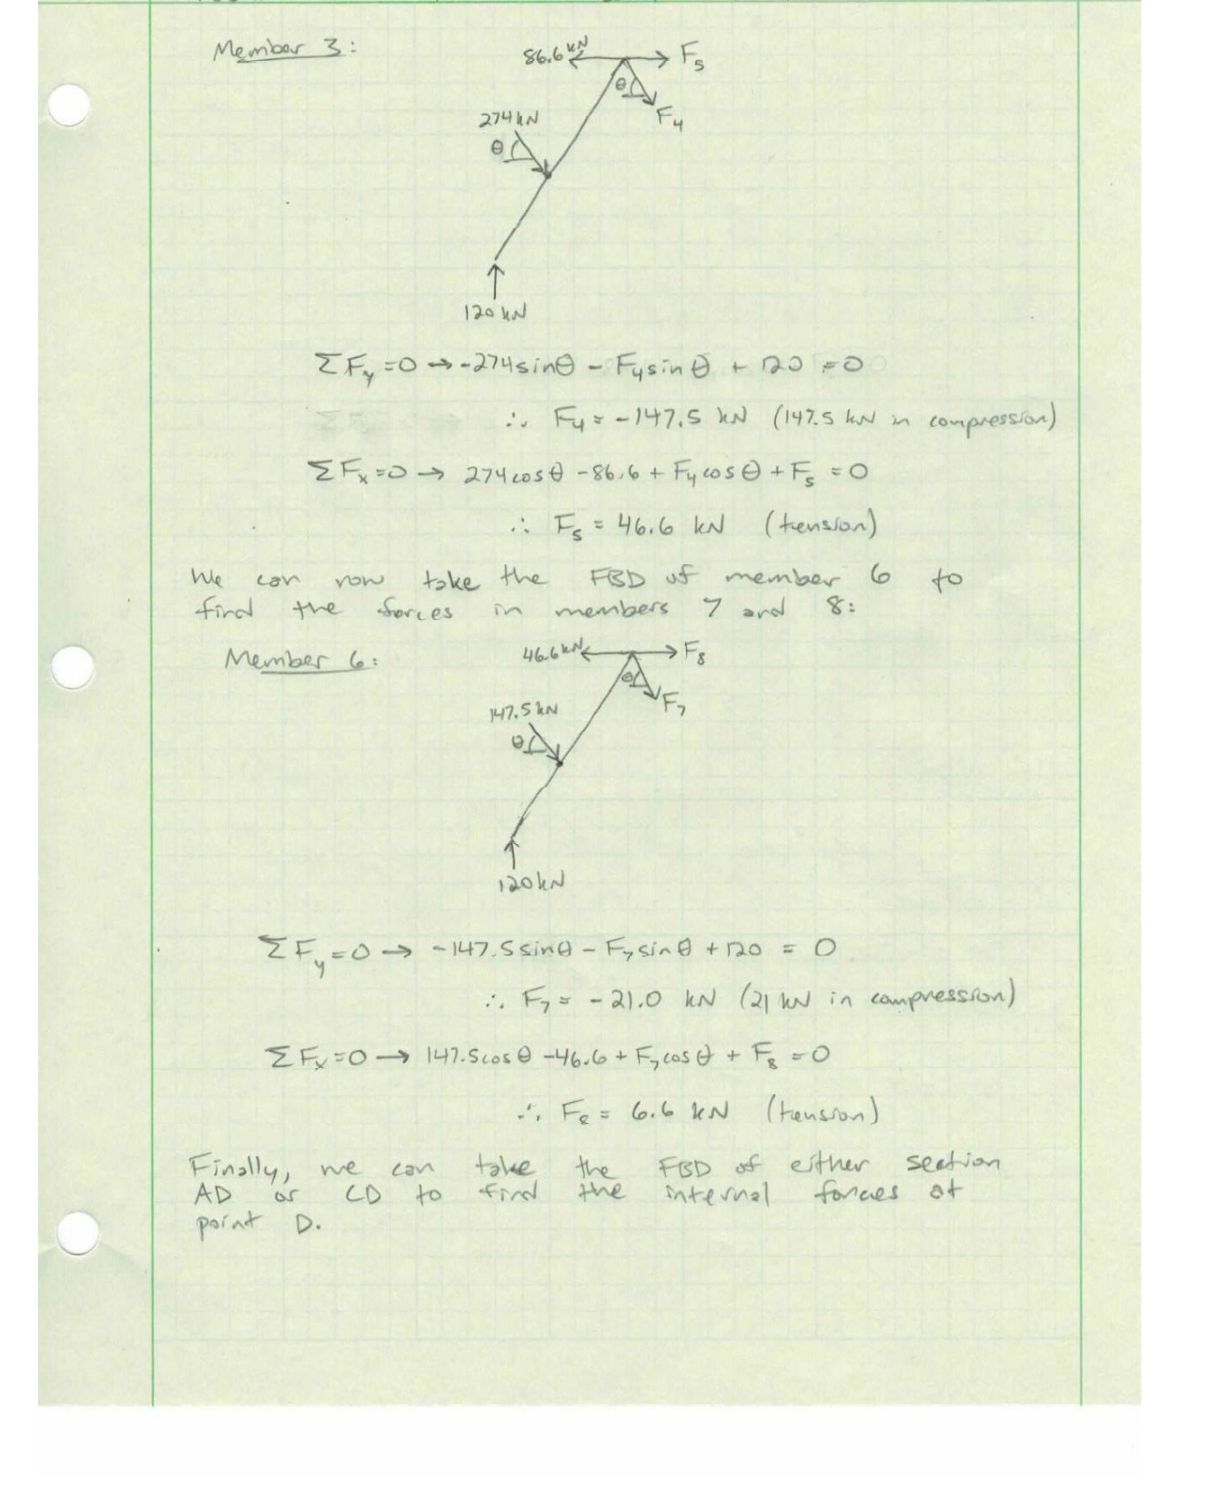 Member 3:
86.6 kN
F₅
θ
F₄
274 kN
θ
120 kN
ΣF_y = 0 → -274sinθ - F₄sinθ + 120 = 0
∴ F₄ = -147.5 kN (147.5 kN in compression)
ΣFₓ = 0 → 274cosθ - 86.6 + F₄cosθ + F₅ = 0
∴ F₅ = 46.6 kN (tension)
We can now take the FBD of member 6 to
find the forces in members 7 and 8:
Member 6:
46.6 kN
F₈
θ
F₇
147.5 kN
θ
120 kN
ΣF_y = 0 → -147.5sinθ - F₇sinθ + 120 = 0
∴ F₇ = -21.0 kN (21 kN in compression)
ΣFₓ = 0 → 147.5cosθ - 46.6 + F₇cosθ + F₈ = 0
∴ F₈ = 6.6 kN (tension)
Finally, we can take the FBD of either section
AD or CD to find the internal forces at
point D.